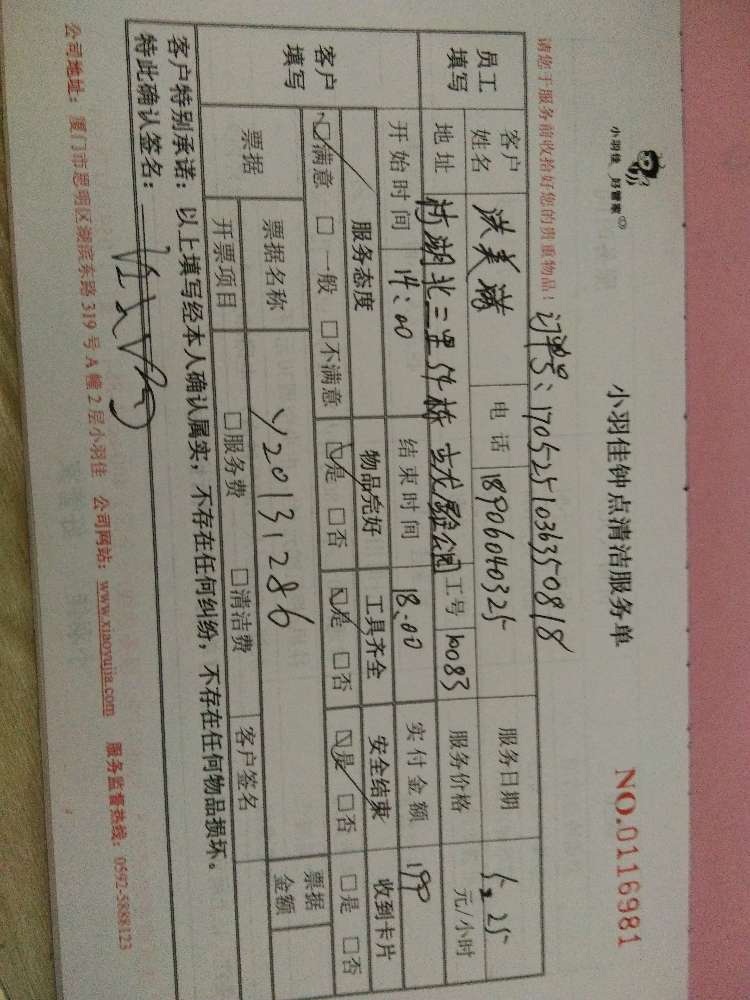 小羽佳 好管家
小羽佳钟点清洁服务单
NO.0116981
请您于服务前收拾好您的贵重物品!
订单号:170525103635081​8
员工填写
客户姓名
洪美
电话
18906040325
服务日期
5.25
地址
湖北二里54栋
公园
工号
10083
服务价格
元/小时
开始时间
14:00
结束时间
18:00
实付金额
190
客户填写
服务态度
物品完好
工具齐全
安全结束
收到卡片
☑满意 □一般 □不满意
☑是 □否
☑是 □否
☑是 □否
□是 □否
票据
票据名称
Y20131286
票据金额
开票项目
□服务费 □清洁费
客户签名
客户特别承诺:以上填写经本人确认属实,不存在任何纠纷,不存在任何物品损坏。
特此确认签名:
公司地址:厦门市思明区湖滨东路319号A幢2层小羽佳 公司网站:www.xiaoyujia.com 服务监督热线:0592-5888123